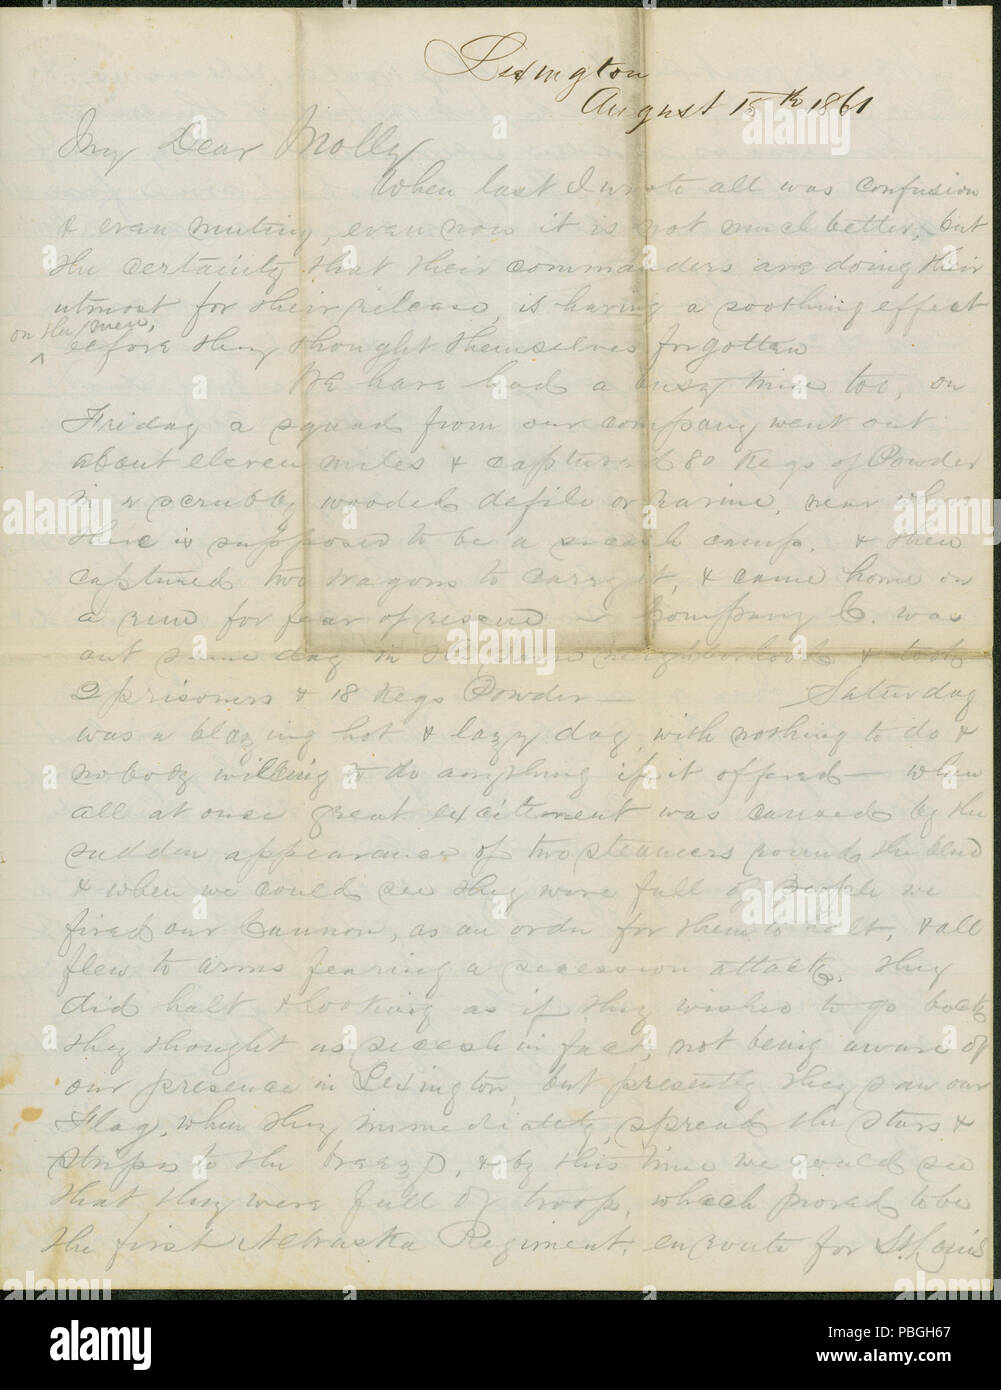 Lexington
August 15th 1861
My Dear Molly
When last I wrote all was confusion
& even mutiny, even now it is not much better, but
the certainty that their commanders are doing their
utmost for their release, is having a soothing effect
on the men,
before they thought themselves forgotten
We have had a busy time too, on
Friday a squad from our company went out
about eleven miles & captured 80 Kegs of Powder
in a scrubby wooded defile or ravine, near where
there is supposed to be a secesh camp. & then
captured two wagons to carry it, & came home on
a run for fear of rescue — Company C. was
out same day in the same neighborhood & took
2 prisoners & 18 Kegs Powder — Saturday
was a blazing hot & lazy day, with nothing to do &
nobody willing to do anything if it offered — when
all at once great excitement was caused by the
sudden appearance of two steamers round the bend
& when we could see they were full of people we
fired our Cannon, as an order for them to halt, & all
flew to arms fearing a secession attack. They
did halt & looking as if they wished to go back
they thought us secesh in fact, not being aware of
our presence in Lexington, but presently they saw our
Flag, when they immediately spread the stars &
stripes to the breeze, & by this time we could see
that they were full of troops, which proved to be
the first Nebraska Regiment, en route for St Louis
alamy
Image ID: PBGH67
www.alamy.com